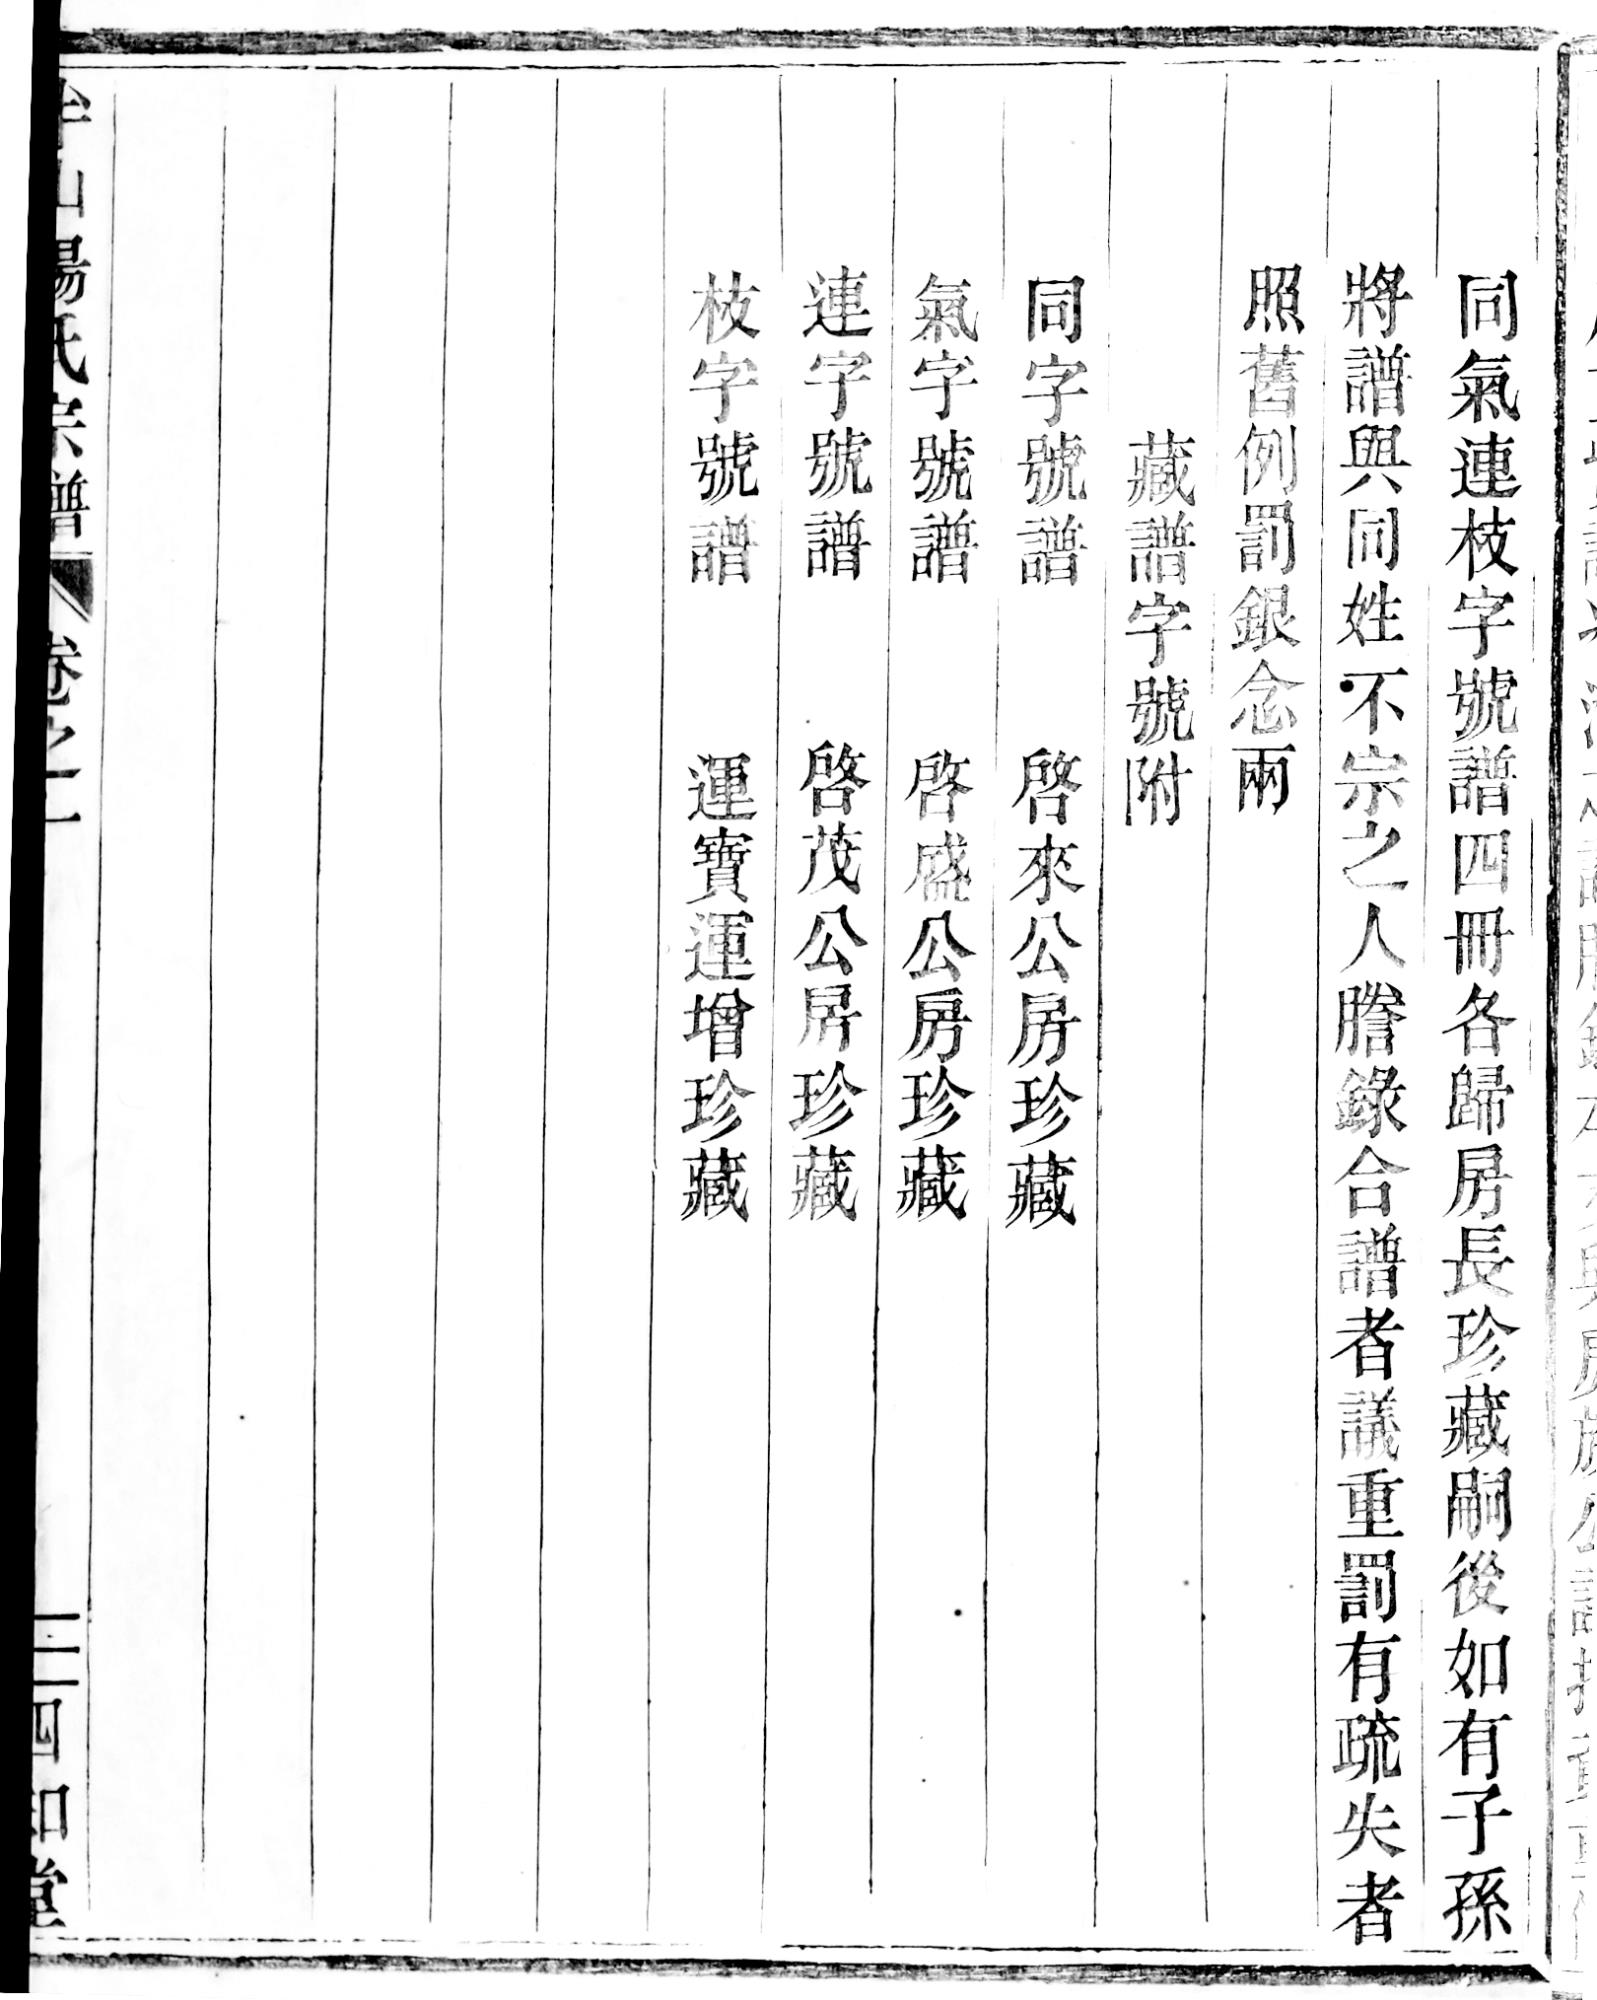 同氣連枝字號譜四冊各歸房長珍藏嗣後如有子孫
將譜與同姓不宗之人謄錄合譜者議重罰有疏失者
照舊例罰銀念兩
藏譜字號附
同字號譜 啓來公房珍藏
氣字號譜 啓盛公房珍藏
連字號譜 啓茂公房珍藏
枝字號譜 運寶運增珍藏
山楊氏宗譜 卷之一 三 四知堂